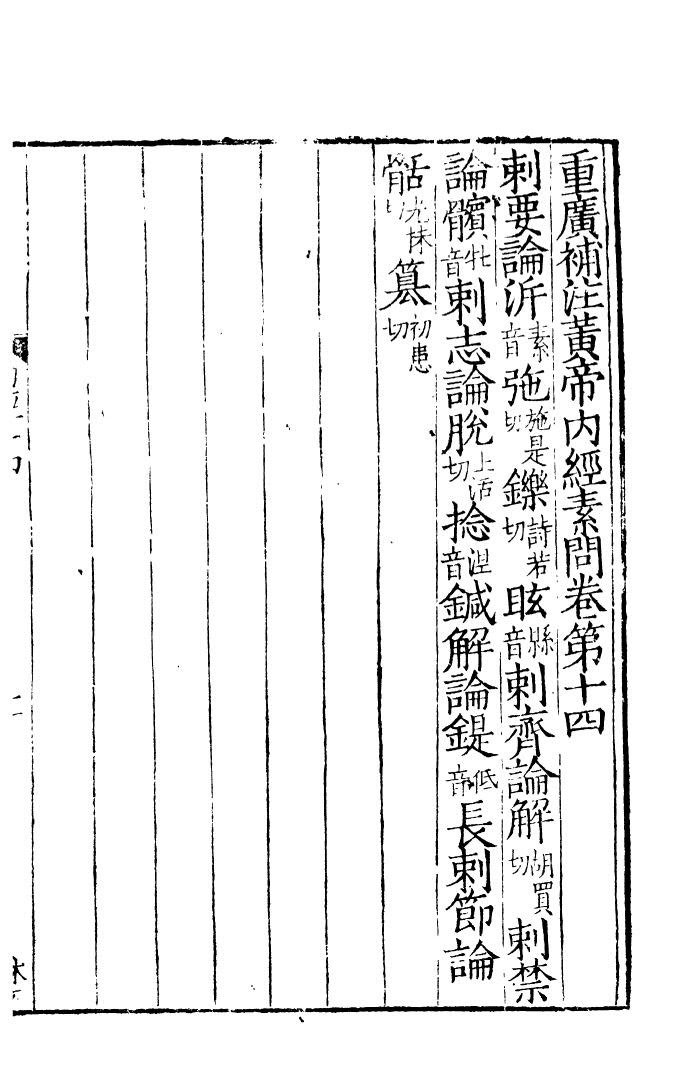 重廣補注黃帝内經素問卷第十四
刺要論泝素音㢮施是切鑠詩若切眩縣音刺齊論解胡買切刺禁
論髕牝音刺志論脫上活切捻涅音鍼解論鍉低音長刺節論
骺光抹切篡初患切